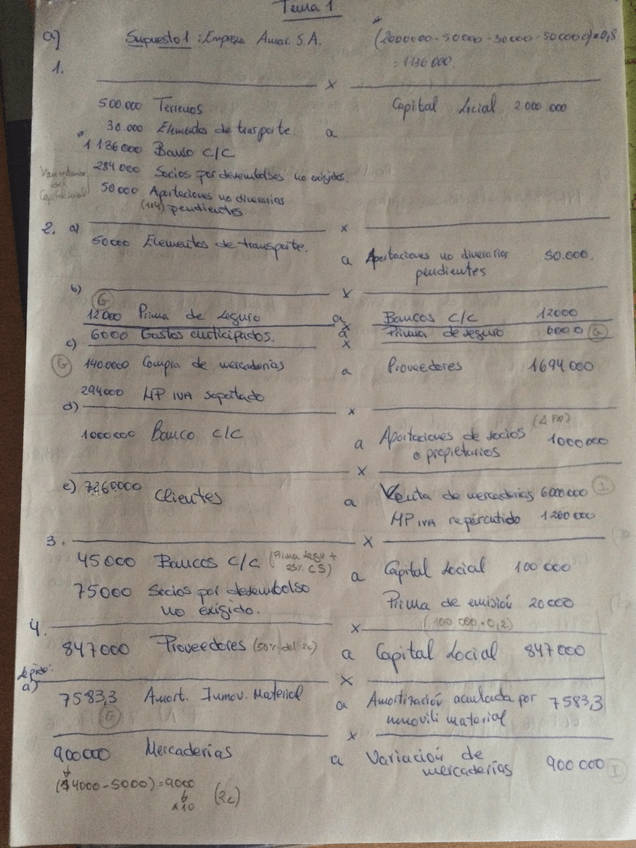 Tema 1
a) Supuesto 1: Empresa Amar S.A. (2000000-50000-30000-500000)*0,8
=1136000
1.
x
500.000 Terrenos Capital Social 2 000 000
30.000 Elementos de trasporte a
1136000 Banco C/C
284000 Socios por desembolsos no exigidos.
50000 Aportaciones no dinerarias
pendientes
2. a) x
50000 Elementos de transporte. a Aportaciones no dinerarias 50.000.
pendientes
b) x
G
12000 Prima de seguro a Bancos C/C 12000
x
6000 Gastos anticipados. a Prima de seguro 6000 G
c) x
G 1400000 Compra de mercaderías a Proveedores 1694000
294000 HP IVA soportado
d) x
1000000 Banco C/C a Aportaciones de socios 1000000
o propietarios
x
e) 7260000 Clientes a Venta de mercaderías 6000000 I
HP IVA repercutido 1200000
3. x
45000 Bancos C/C (Prima +
25% CS) a Capital Social 100 000
75000 Socios por desembolso
no exigido. Prima de emisión 20000
(100 000*0,2)
4. x
847000 Proveedores (50% del 2c) a Capital Social 847000
x
a) 7583,3 Amort. Inmov. Material a Amortización acumulada por 7583,3
G inmovili material
x
900000 Mercaderías a Variación de 900000 I
mercaderías
(14000-5000)=9000 (2c)